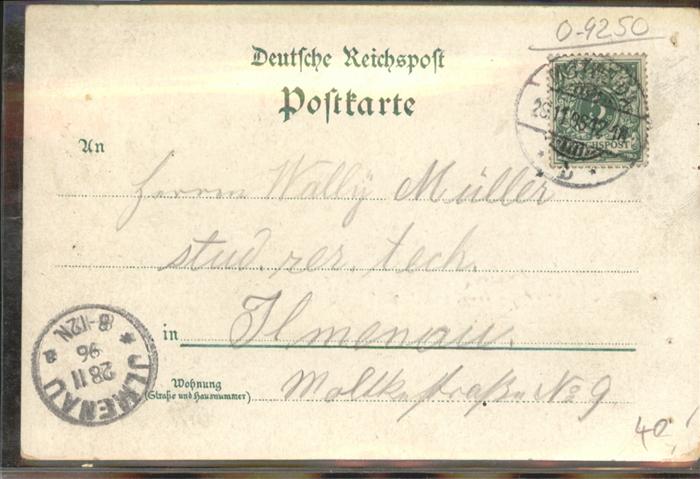 O-9250
Deutsche Reichspost
Postkarte
5
REICHSPOST
An
Herrn Wally Müller
stud. rer. tech.
in Ilmenau.
Wohnung
(Straße und Hausnummer)
Moltkestraße No 9
JLMENAU
28 11
96
8-12N
40,